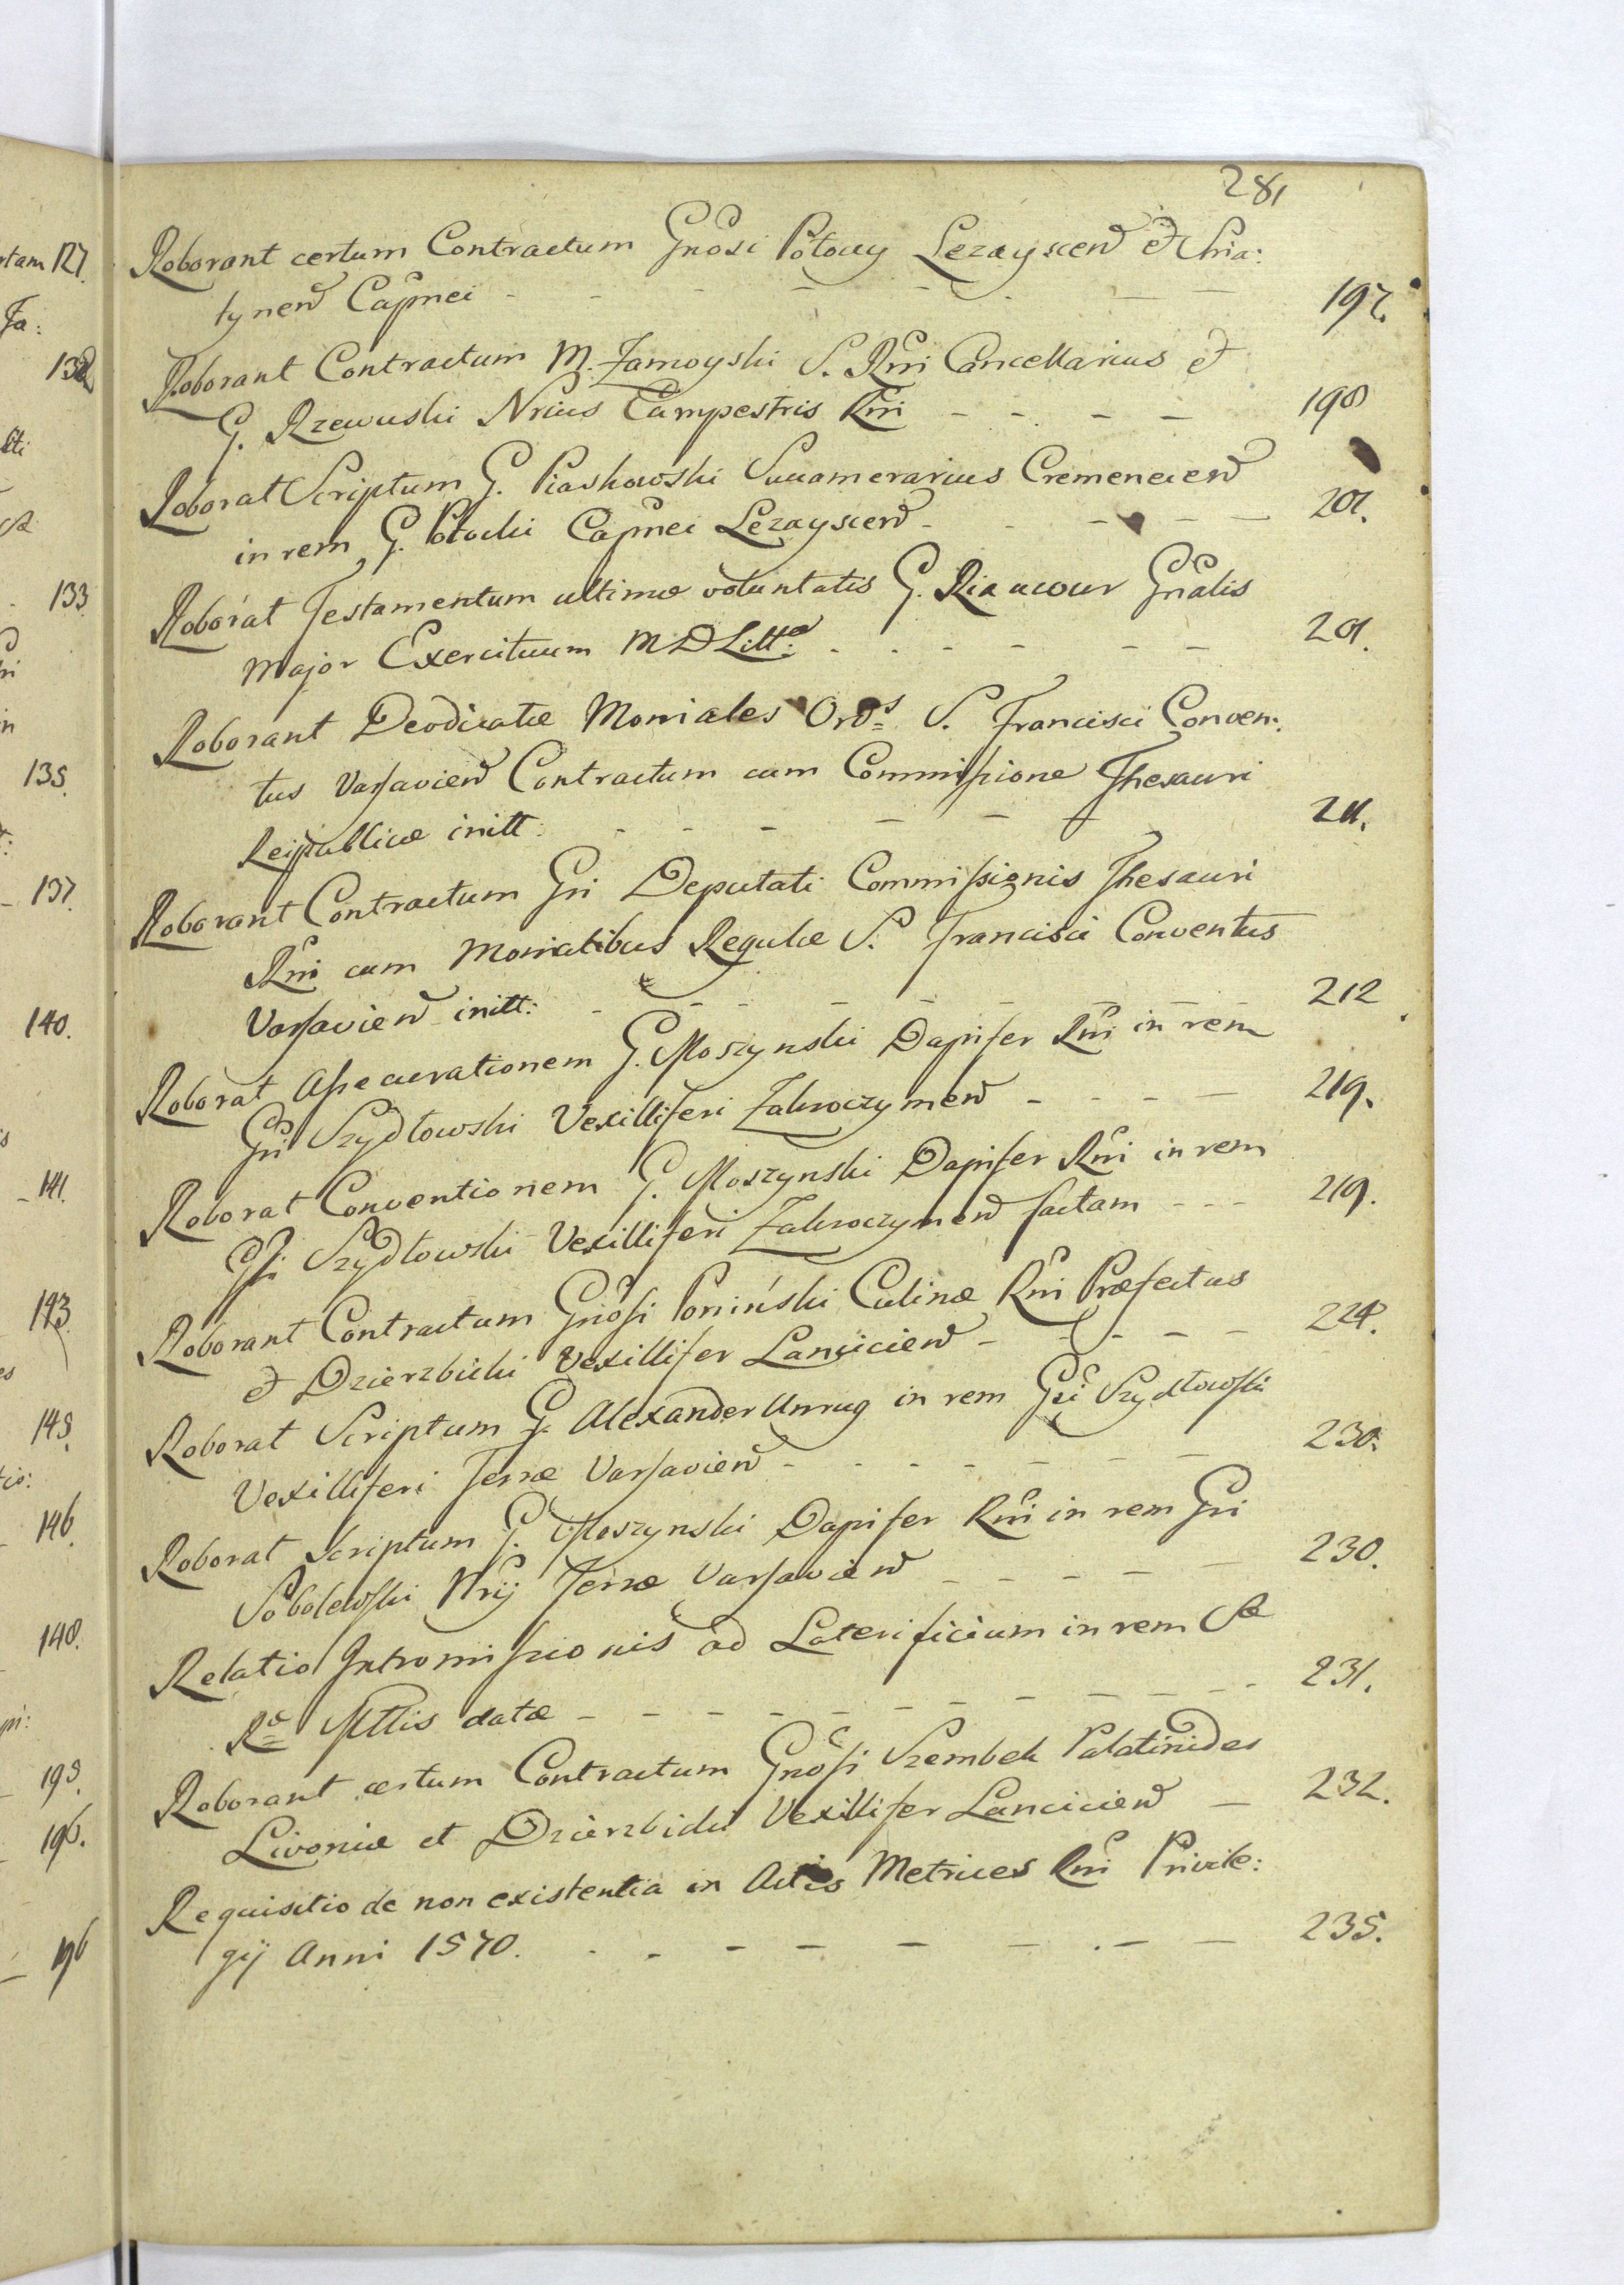 281
Roborant certum Contractum Gnosi Potoccy Lezayscen et Snia:
tynen Capnei - - - - - - - 197.
Roborant Contractum M. Zamoyski S. Rni Cancellarius et
G. Rzewuski Nrius Campestris Rni - - - - 198
Roborat Scriptum G. Piaskowski Succamerarius Cremenecen
in rem G. Potocki Capnei Lezayscen - - - - - 201.
Roborat Testamentum ultimæ voluntatis G. Riaucour Gnalis
Major Exercituum M D Litt: - - - - - - 201.
Roborant Deodicatæ Moniales Ords S. Francisci Conven:
tus Varsavien Contractum cum Commissione Thesauri
Reipublicæ initt: - - - - - - 211.
Roborant Contractum Gri Deputati Commissionis Thesauri
Rni cum Monialibus Regulæ S. Francisci Conventus
Varsavien initt: - - - - - - - - 212
Roborat Assecurationem G. Moszynski Dapifer Rni in rem
Gri Szydłowski Vexilliferi Zakroczymen - - - - 219.
Roborat Conventionem G. Moszynski Dapifer Rni in rem
Gri Szydłowski Vexilliferi Zakroczymen factam - - - 219.
Roborant Contractum Gnosi Poniński Culinæ Rni Præfectus
et Dzierzbicki Vexillifer Lancicien - - - - - 224.
Roborat Scriptum G. Alexander Unrug in rem Gri Szydłowski
Vexilliferi Terræ Varsavien - - - - - - - 230.
Roborat Scriptum G. Moszynski Dapifer Rni in rem Gri
Sobolewski Nrij Terræ Varsavien - - - - - 230.
Relatio Intromissionis ad Laterificium in rem Sæ
Ræ Mttis datæ - - - - - - - - - - - - 231.
Roborant certum Contractum Gnosi Szembek Palatinides
Livoniæ et Dzierzbicki Vexillifer Lancicien - 232.
Requisitio de non existentia in Actis Metrices Rni Privile:
gij Anni 1570. - - - - - - - - 235.
rtam 127.
Ja:
132
133
135.
- 137.
140.
- 141.
143
145.
146.
148.
195.
196.
- 196